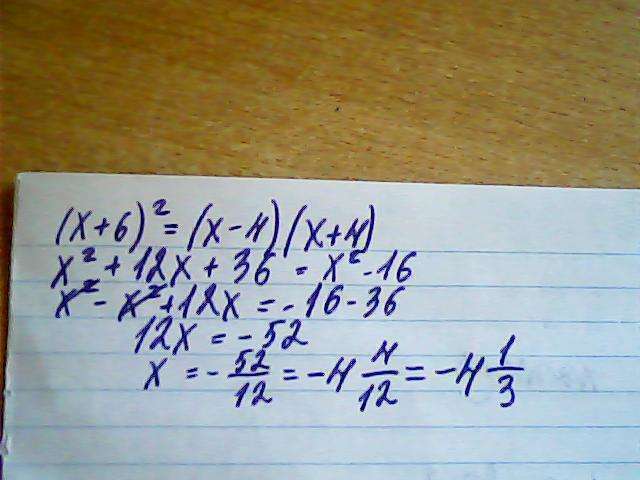 (x+6)² = (x-4)(x+4)
x² + 12x + 36 = x² - 16
x² - x² + 12x = -16 - 36
12x = -52
x = -52/12 = -4 4/12 = -4 1/3